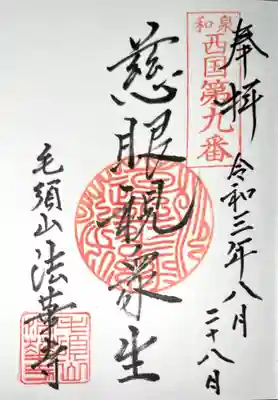 奉拝
令和三年八月
二十八日
和泉
西国第九番
慈眼視衆生
毛頭山法華寺